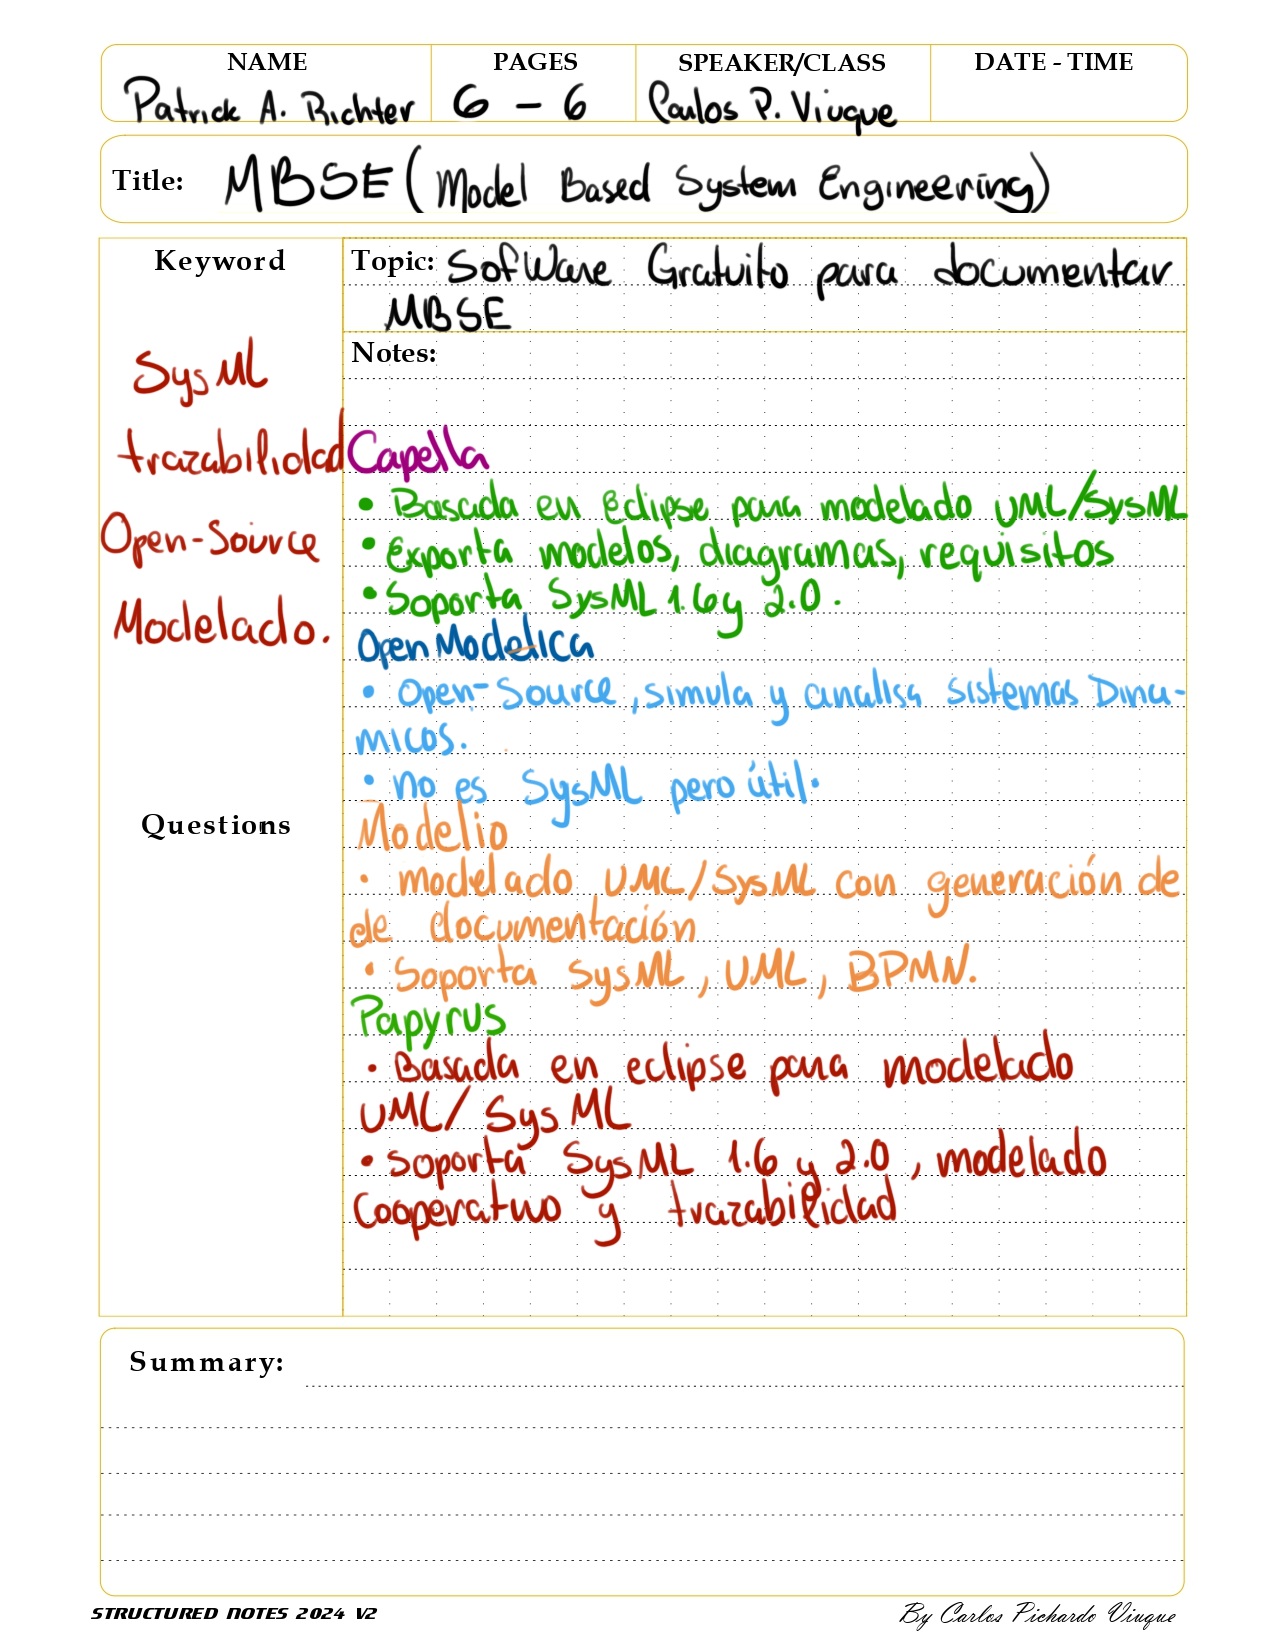 NAME PAGES SPEAKER/CLASS DATE - TIME
Patrick A. Richter 6 - 6 Carlos P. Viuque
Title: MBSE (Model Based System Engineering)
Keyword
SysML
trazabilidad
Open-Source
Modelado.
Questions
Topic: SofWare Gratuito para documentar
MBSE
Notes:
Capella
• Basada en Eclipse para modelado UML/SysML
• Exporta modelos, diagramas, requisitos
• Soporta SysML 1.6 y 2.0.
Open Modelica
• Open-Source, simula y analisa sistemas Dina-
micos.
• no es SysML pero útil.
Modelio
• modelado UML/SysML con generación de
de documentación
• Soporta SysML, UML, BPMN.
Papyrus
• Basada en eclipse para modelado
UML/SysML
• Soporta SysML 1.6 y 2.0, modelado
Cooperativo y trazabilidad
Summary:
STRUCTURED NOTES 2024 V2
By Carlos Pichardo Viuque